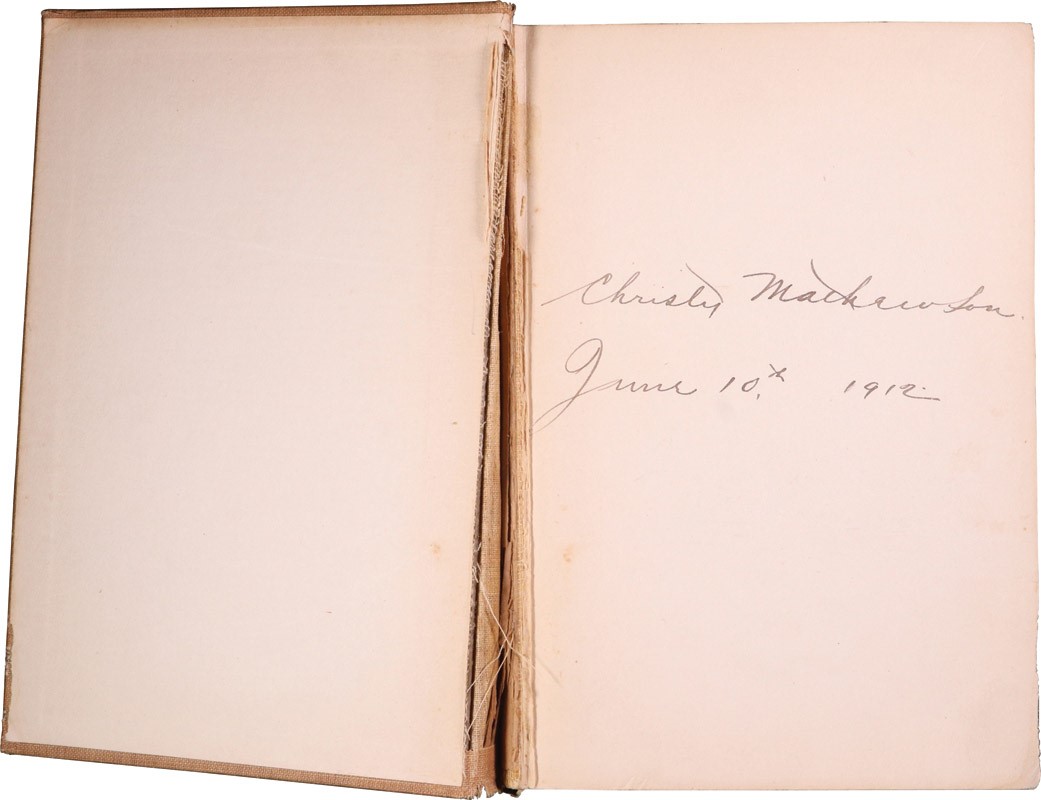 Christy Mathewson.
June 10th. 1912